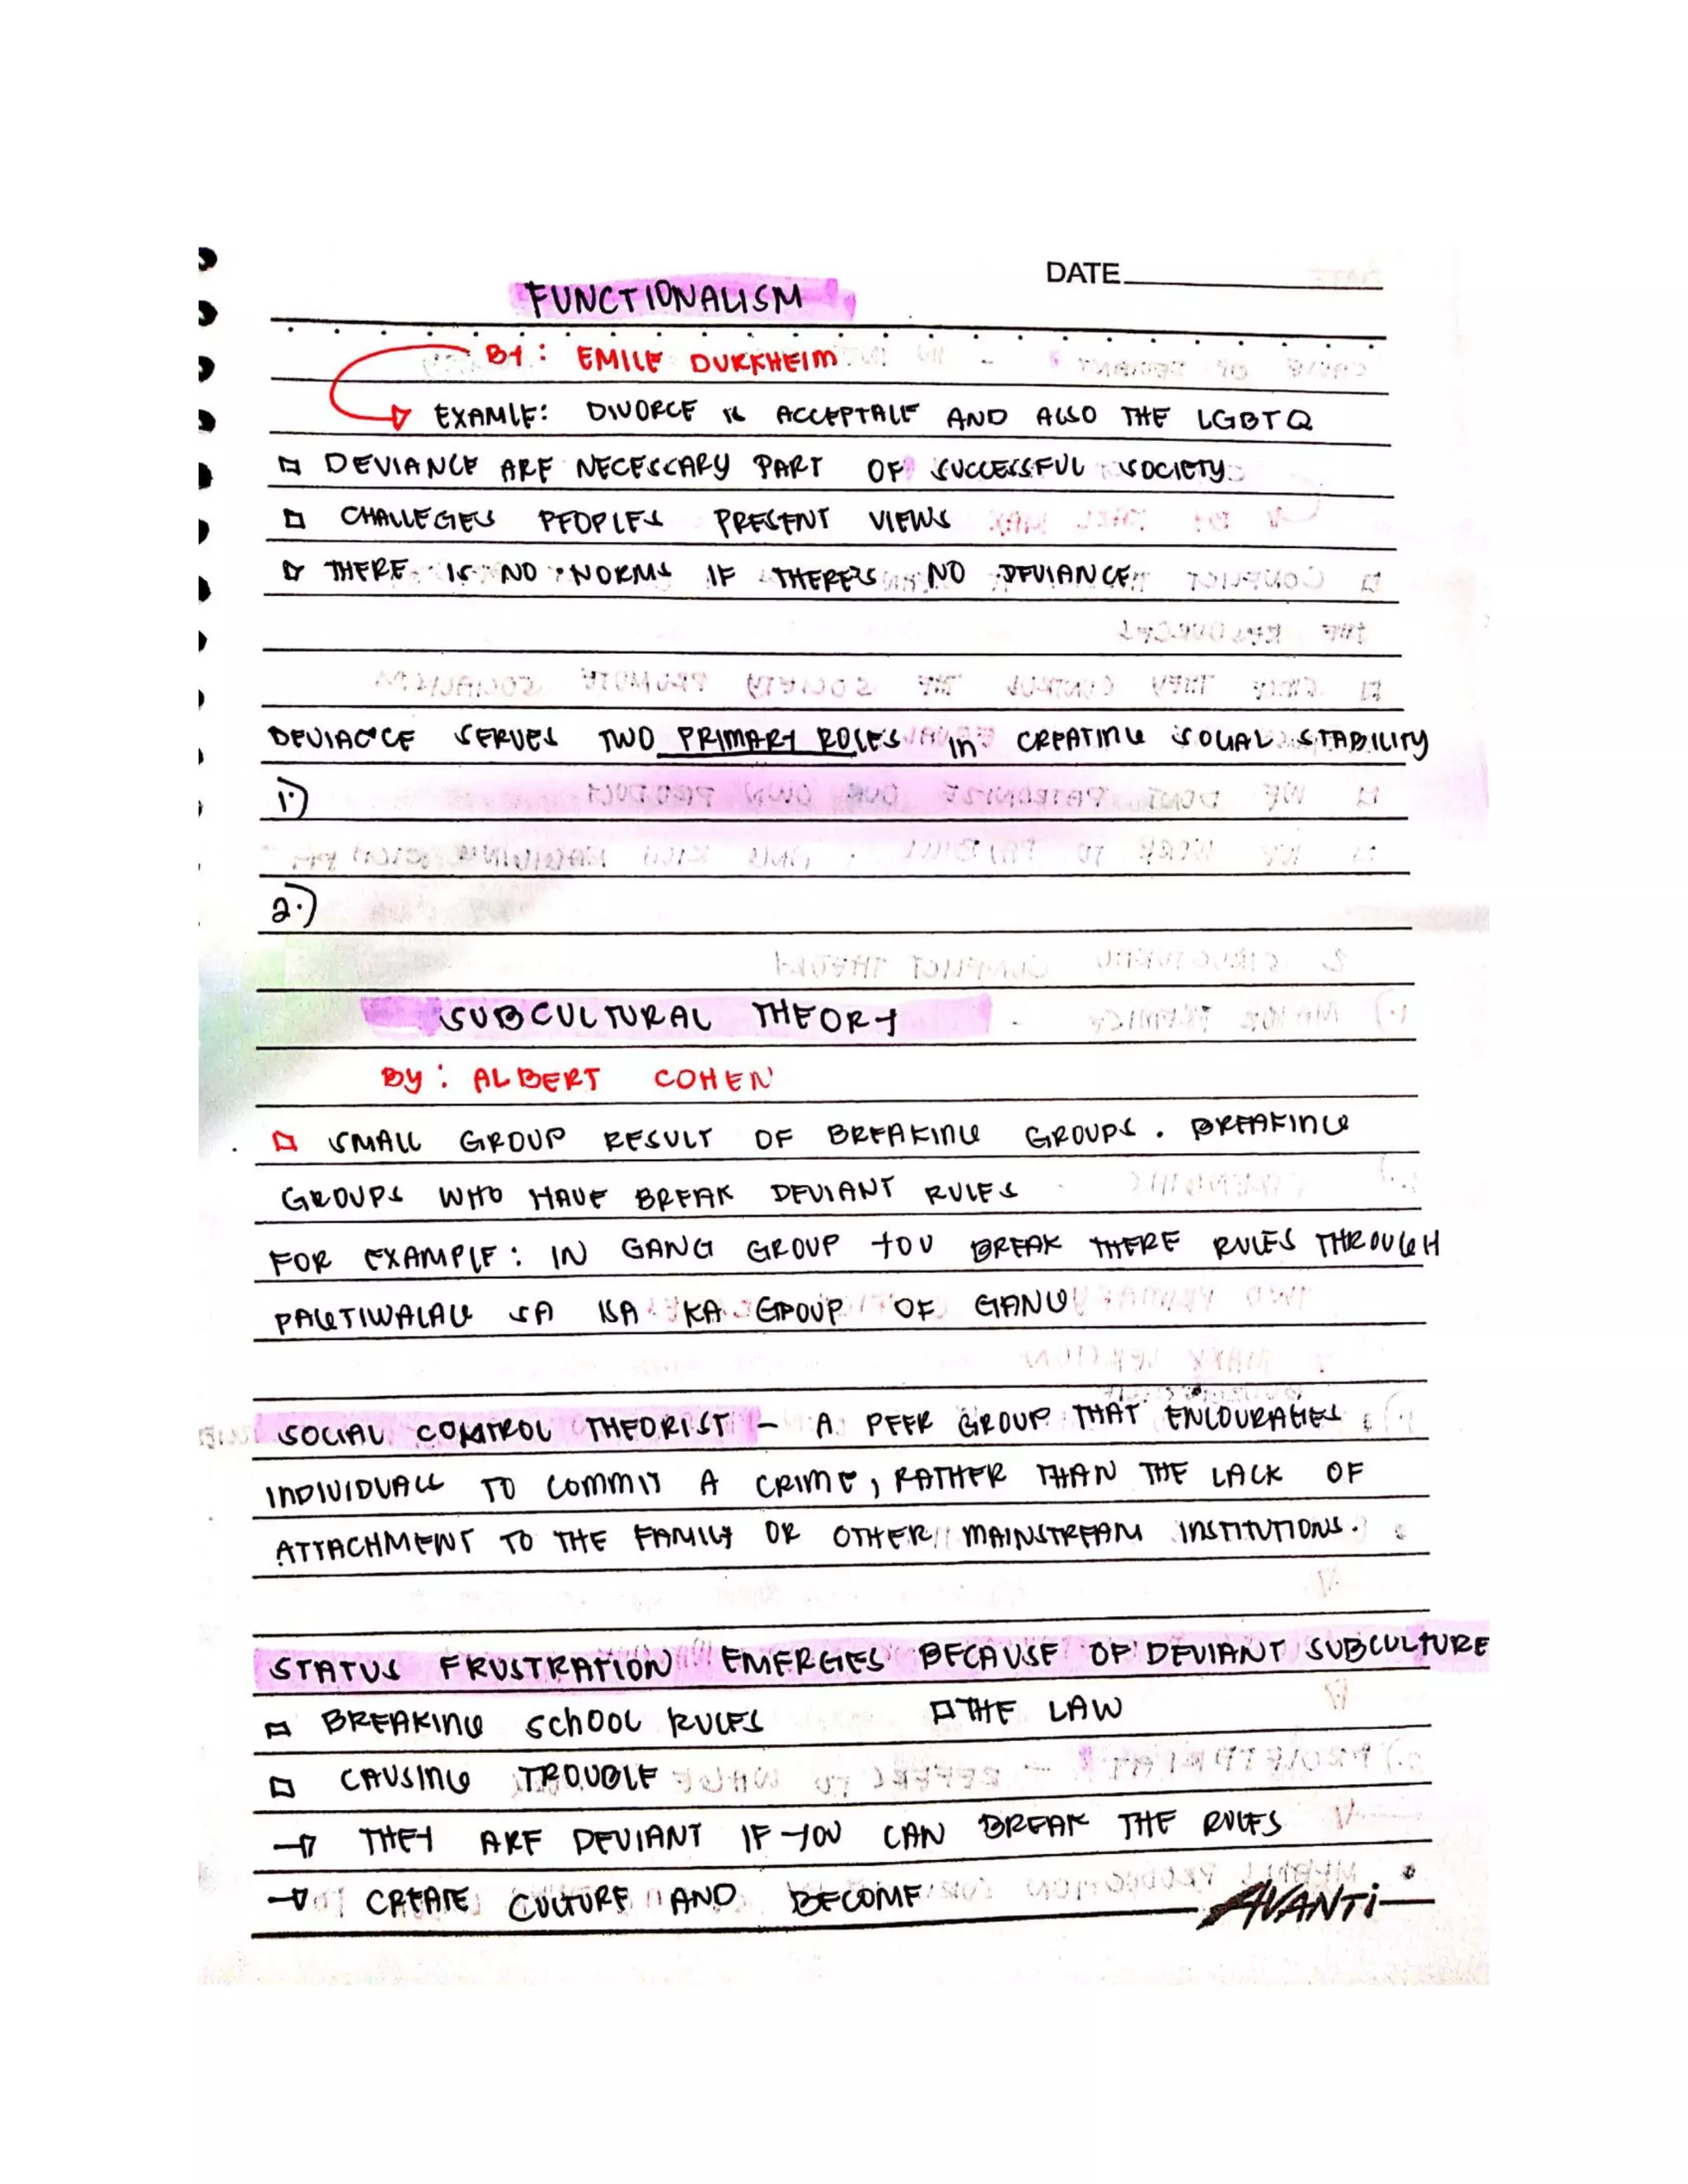 DATE
FUNCTIONALISM
BY: EMILE DURKHEIM
EXAMLE: DIVORCE IS ACCEPTALE AND ALSO THE LGBTQ
DEVIANCE ARE NECESSARY PART OF SUCCESSFUL SOCIETY
CHALLEGES PEOPLES PRESENT VIEWS
THERE IS NO NORMS IF THERE'S NO DEVIANCE
DEVIANCE SERVES TWO PRIMARY ROLES in CREATING SOCIAL STABILITY
1.)
2.)
SUBCULTURAL THEORY
BY: ALBERT COHEN
SMALL GROUP RESULT OF BREAKING GROUPS. BREAKING
GROUPS WHO HAVE BREAK DEVIANT RULES
FOR EXAMPLE: IN GANG GROUP YOU BREAK THERE RULES THROUGH
PAGTIWALAG SA ISA KA GROUP OF GANG
SOCIAL CONTROL THEORIST - A PEER GROUP THAT ENCOURAGES
INDIVIDUALL TO COMMIT A CRIME, RATHER THAN THE LACK OF
ATTACHMENT TO THE FAMILY OR OTHER MAINSTREAM INSTITUTIONS.
STATUS FRUSTRATION EMERGES BECAUSE OF DEVIANT SUBCULTURE
BREAKING SCHOOL RULES THE LAW
CAUSING TROUBLE
THEY ARE DEVIANT IF YOU CAN BREAK THE RULES
CREATE CULTURE AND BECOME
AVANTi